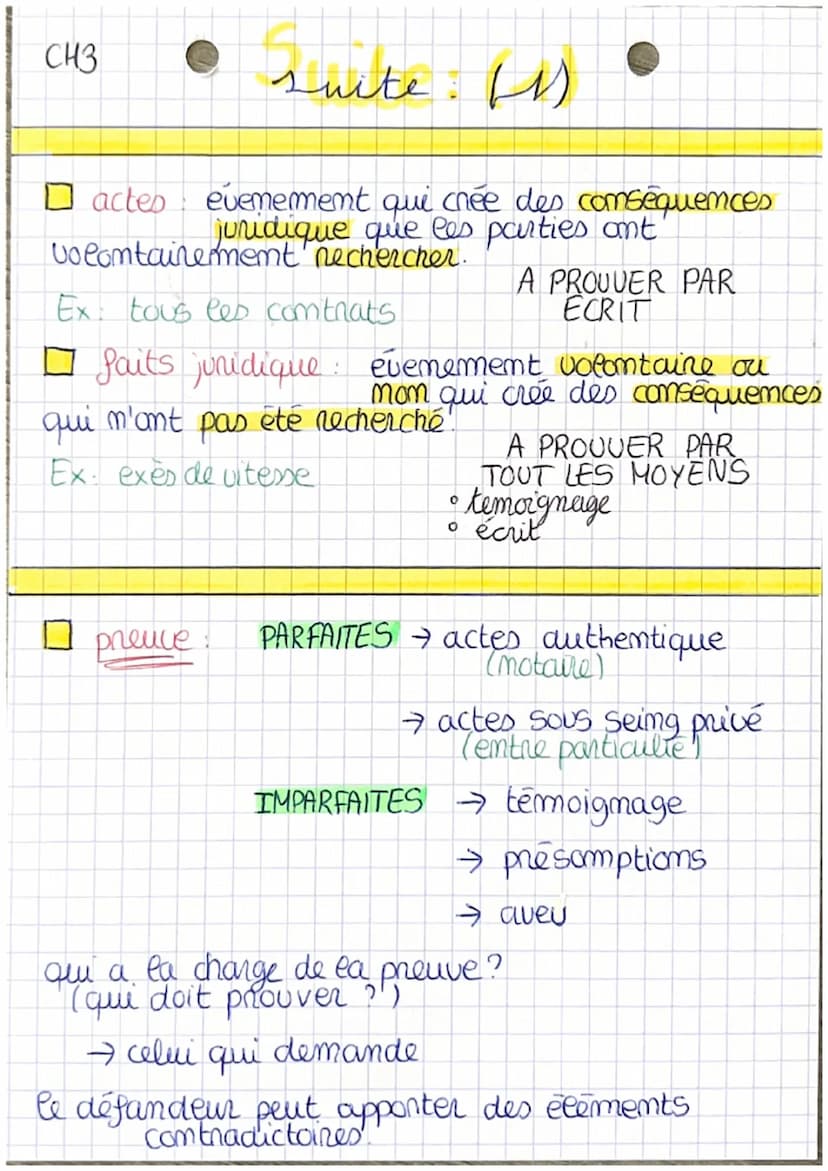 CH3
Suite : (1)
actes : évenement qui crée des conséquences
juridique que les parties ont
volontairement rechercher.
A PROUVER PAR
ECRIT
Ex : tous les contrats
faits juridique : évenement volontaire ou
non qui crée des conséquences
qui n'ont pas été recherché.
A PROUVER PAR
TOUT LES MOYENS
Ex : exès de vitesse
° temoignage
° écrit
preuve : PARFAITES → actes authentique
(notaire)
→ actes sous seing privé
(entre particulié)
IMPARFAITES → témoignage
→ présomptions
→ aveu
qui a la charge de la preuve ?
(qui doit prouver ?)
→ celui qui demande
le défandeur peut apporter des éléments
contradictoires.